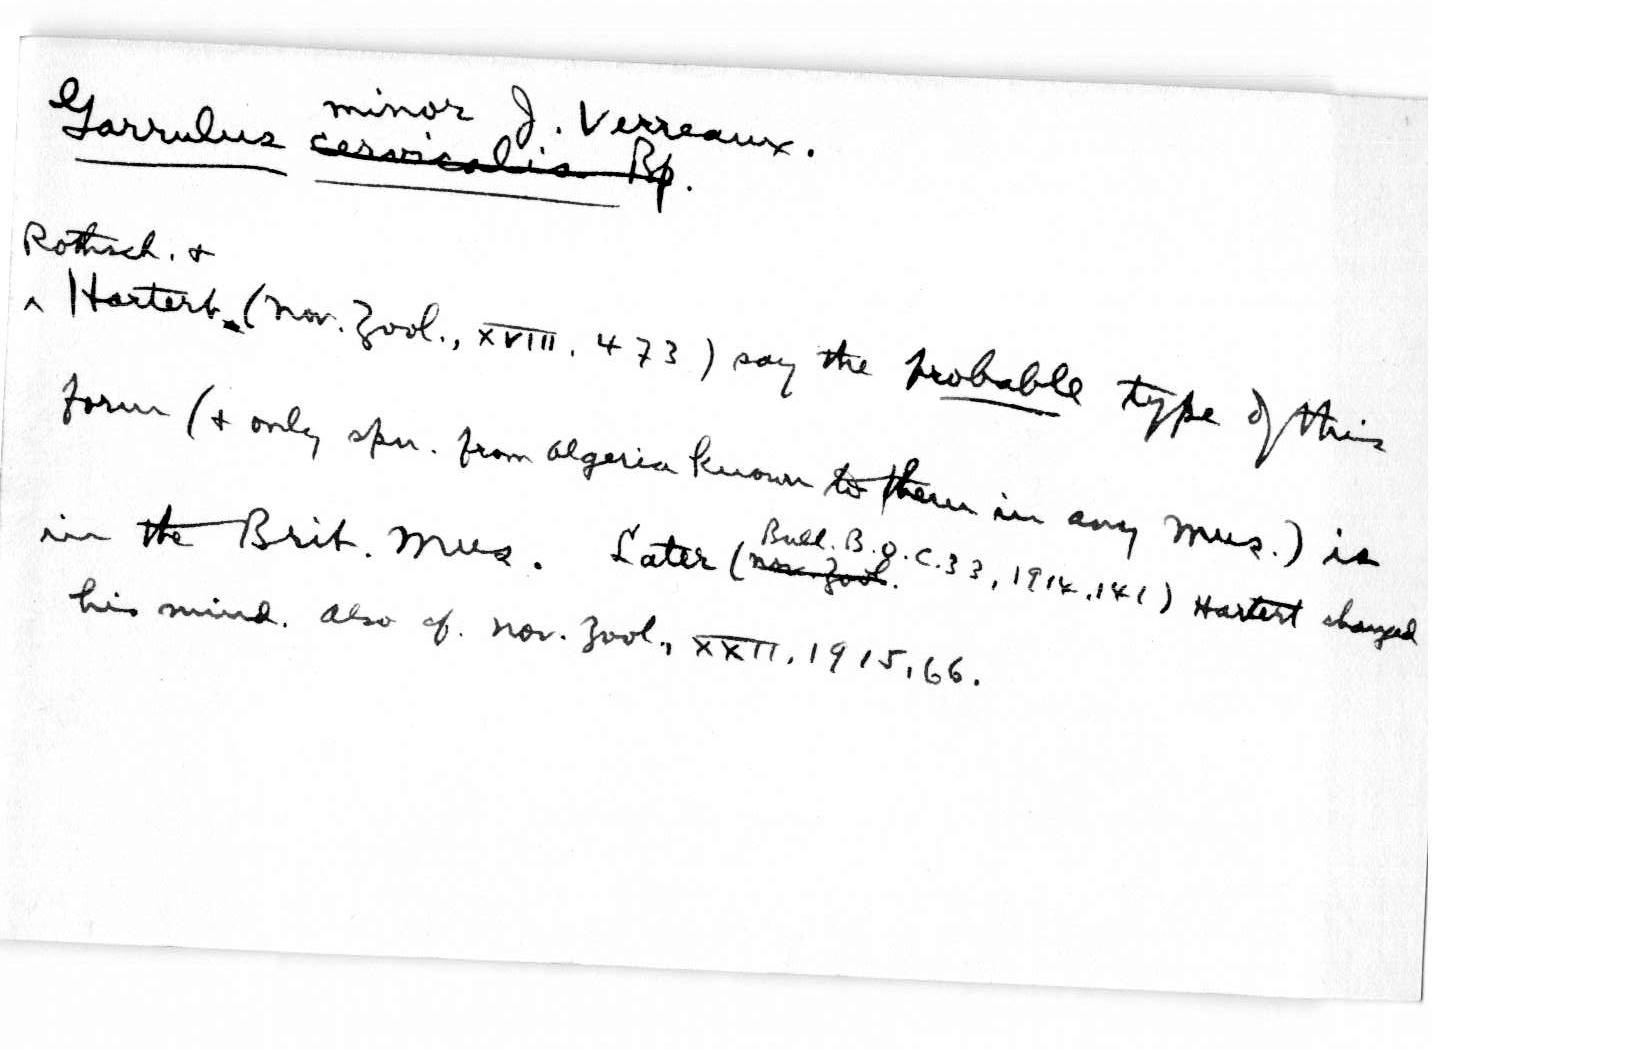 minor J. Verreaux.
Garrulus cervicalis Bp.
Rothsch. +
^ Hartert (Nov. Zool., XVIII. 473) say the probable type of this
form (+ only spn. from Algeria known to them in any Mus.) is
Bull. B.O.C. 33, 1914, 141)
in the Brit. Mus. Later (Nov. Zool. Hartert changed
his mind. Also cf. Nov. Zool., XXII, 1915, 66.